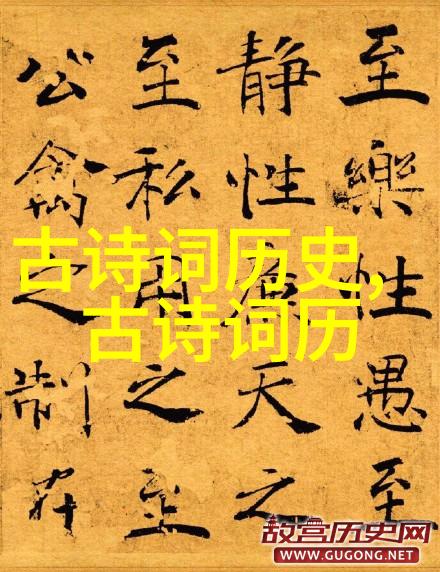 至樂性愚至
静性天之
至私用之至
公禽之制在
古诗词历史,
古诗词历
故宫历史网
WWW.GUGONG.NET